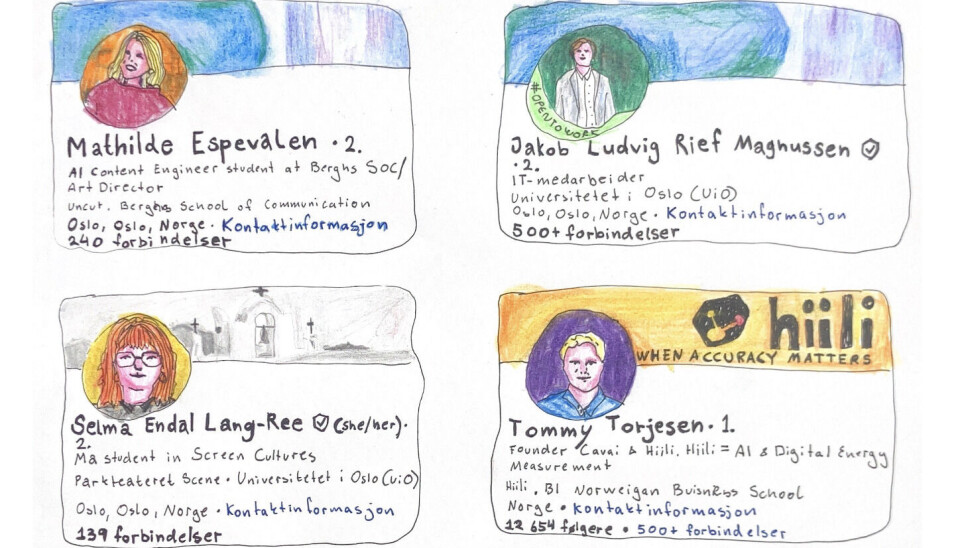 Mathilde Espevalen · 2.
AI Content Engineer student at Berghs SOC/
Art Director
Uncut. Berghs School of Communication
Oslo, Oslo, Norge · Kontaktinformasjon
240 forbindelser
#OPENTOWORK
Jakob Ludvig Rief Magnussen
· 2.
IT-medarbeider
Universitetet i Oslo (UiO)
Oslo, Oslo, Norge · Kontaktinformasjon
500+ forbindelser
Selma Endal Lang-Ree (she/her) ·
2.
Ma student in Screen Cultures
Parkteateret Scene · Universitetet i Oslo (UiO)
Oslo, Oslo, Norge · Kontaktinformasjon
139 forbindelser
hiili
WHEN ACCURACY MATTERS
Tommy Torjesen · 1.
Founder Cavai & Hiili. Hiili = AI & Digital Energy
Measurement
Hiili . BI Norweigan Buisness School
Norge · Kontaktinformasjon
12 654 følgere · 500+ forbindelser